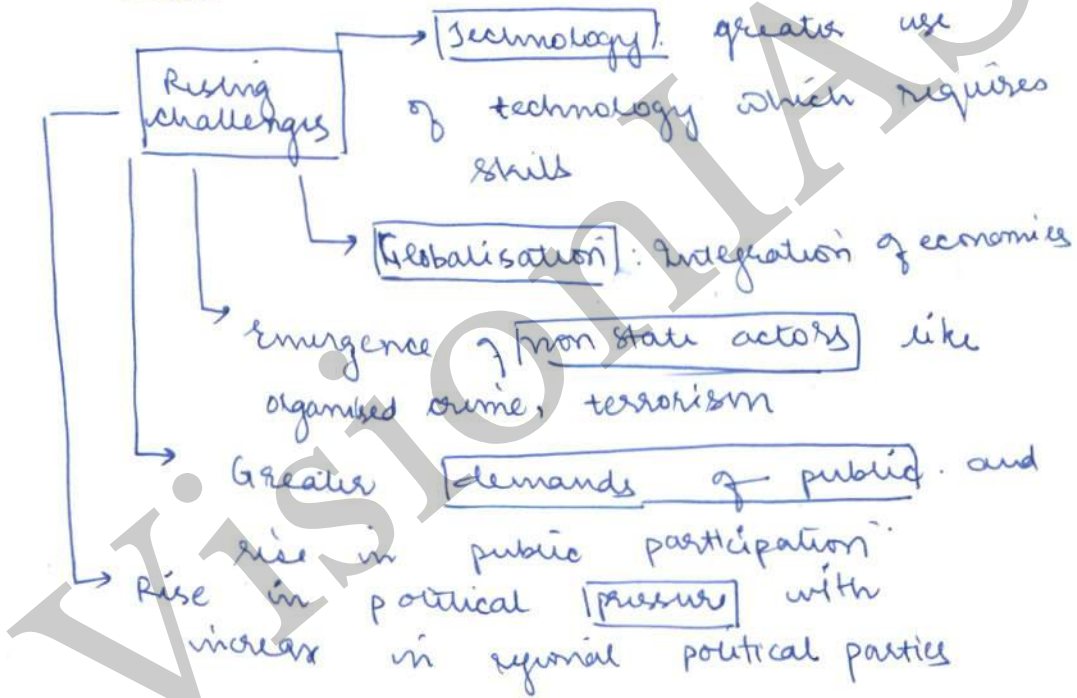 Rising
challenges
Technology: greater use
of technology which requires
skills
Globalisation: Integration of economies
Emergence of non state actors like
organised crime, terrorism
Greater demands of public and
rise in public participation
Rise in political pressure with
increase in regional political parties
VisionIAS